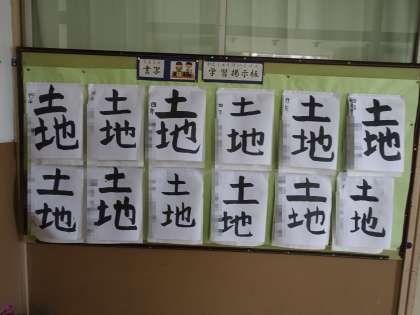 書写
学習掲示板
土地
土地
土地
土地
土地
土地
土地
土地
土地
土地
土地
土地